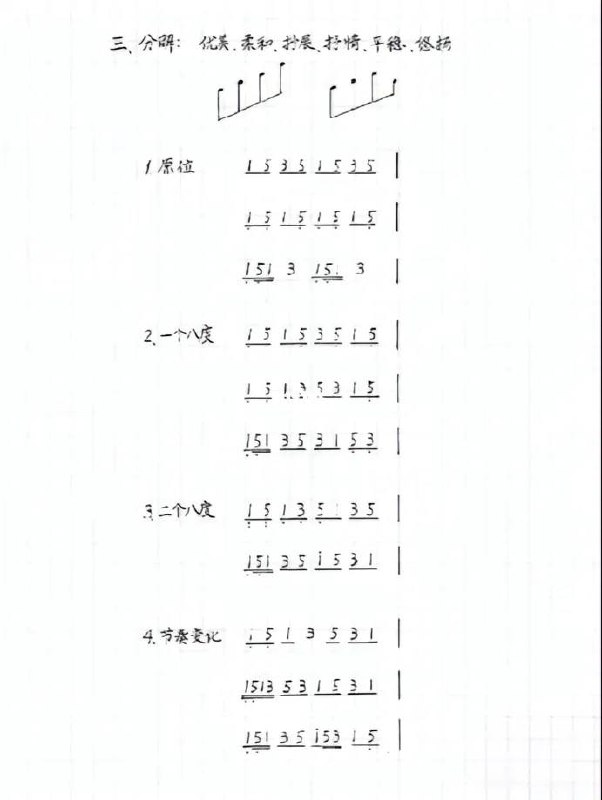 三、分解：优美、柔和、抒展、抒情、平稳、悠扬
1.原位 1 5 3 5 1 5 3 5 |
1 5 1 5 1 5 1 5 |
151 3 151 3 |
2.一个八度 1 5 1 5 3 5 1 5 |
1 5 1 3 5 3 1 5 |
151 3 5 3 1 5 3 |
3.二个八度 1 5 1 3 5 1 3 5 |
151 3 5 1 5 3 1 |
4.节奏变化 1 5 1 3 5 3 1 |
1513 5 3 1 5 3 1 |
151 3 5 153 1 5 |